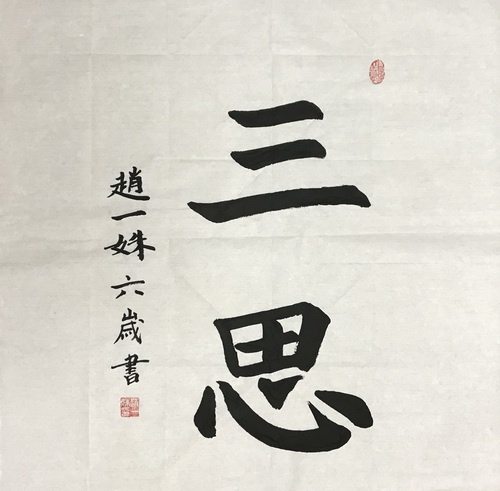 三思
趙一姝六歲書